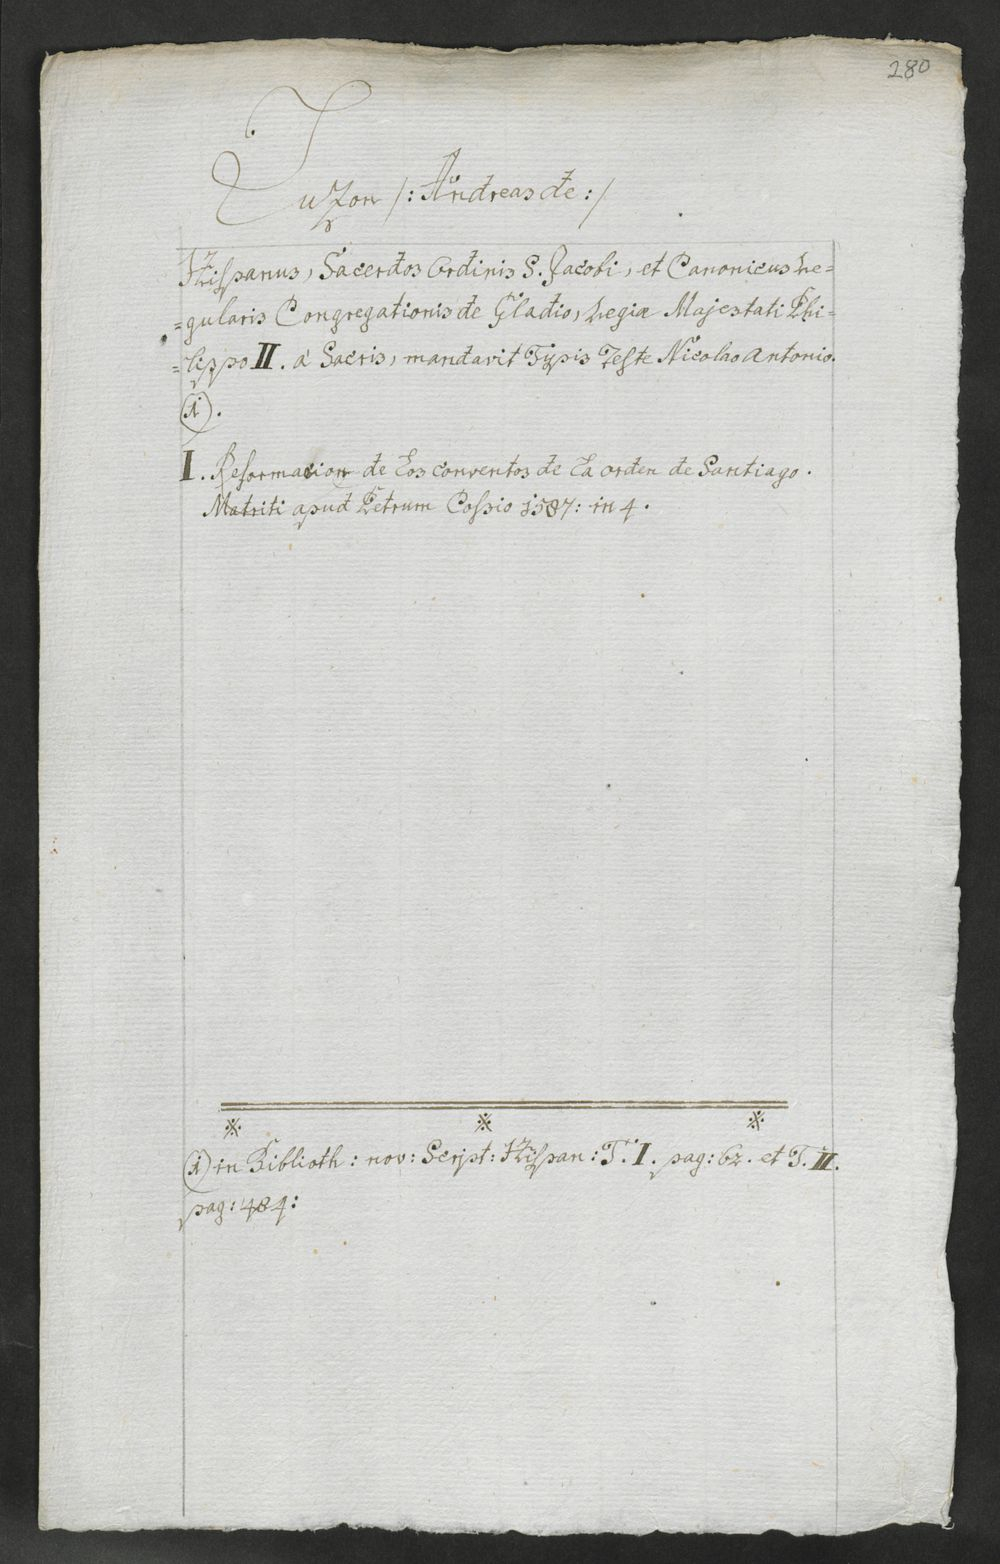 280
Tuzon /: Andreas de :/
Hispanus, Sacerdos Ordinis S. Jacobi, et Canonicus Re=
=gularis Congregationis de Gladio, Regiæ Majestati Phi=
=lippo II. a Sacris, mandavit Typis Teste Nicolao Antonio.
(1).
I. Reformacion de Los conventos de La orden de Santiago.
Matriti apud Petrum Cossio 1587: in 4.
(1) in Biblioth: nov: Script: Hispan: T. I. pag: 62. et T. II.
pag: 484: